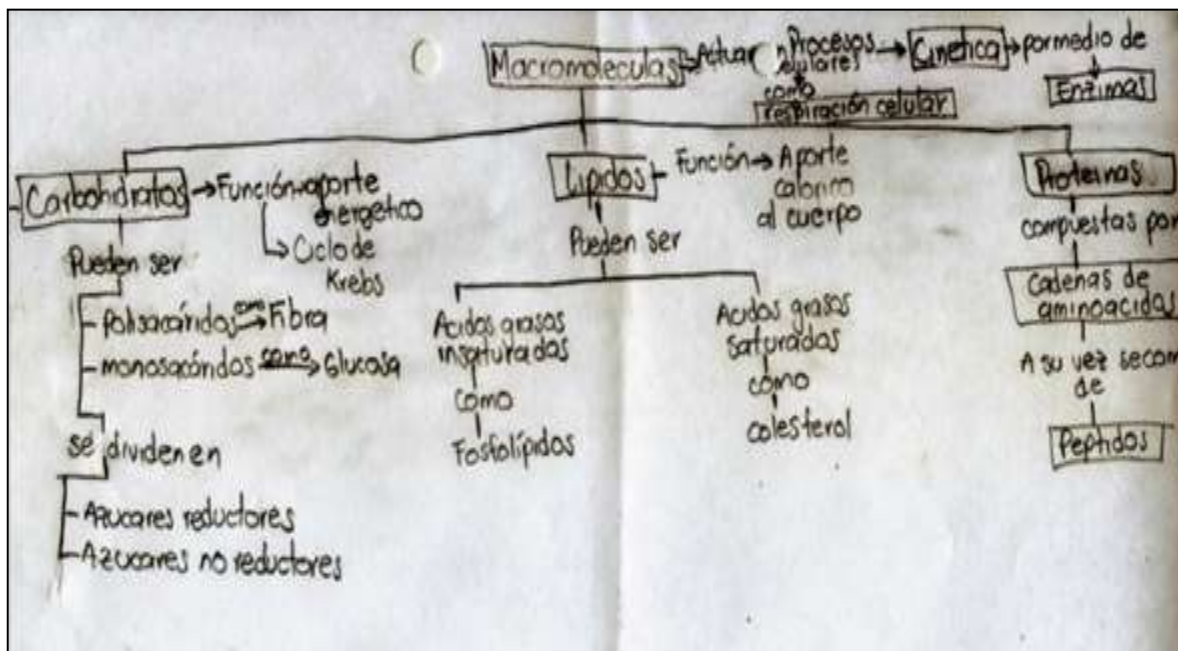 Macromoleculas
Actuan
Procesos
celulares
como
respiración celular
Cinetica
por medio de
Enzimas
Carbohidratos
Función
aporte
energetico
Ciclo de
Krebs
Pueden ser
- polisacáridos como Fibra
- monosacáridos como Glucosa
se dividen en
- Azucares reductores
- Azucares no reductores
Lipidos
Función
Aporte
calorico
al cuerpo
Pueden ser
Acidos grasos
insaturados
como
Fosfolípidos
Acidos grasos
saturados
como
colesterol
Proteinas
compuestas por
Cadenas de
aminoacidos
A su vez se com
de
Peptidos